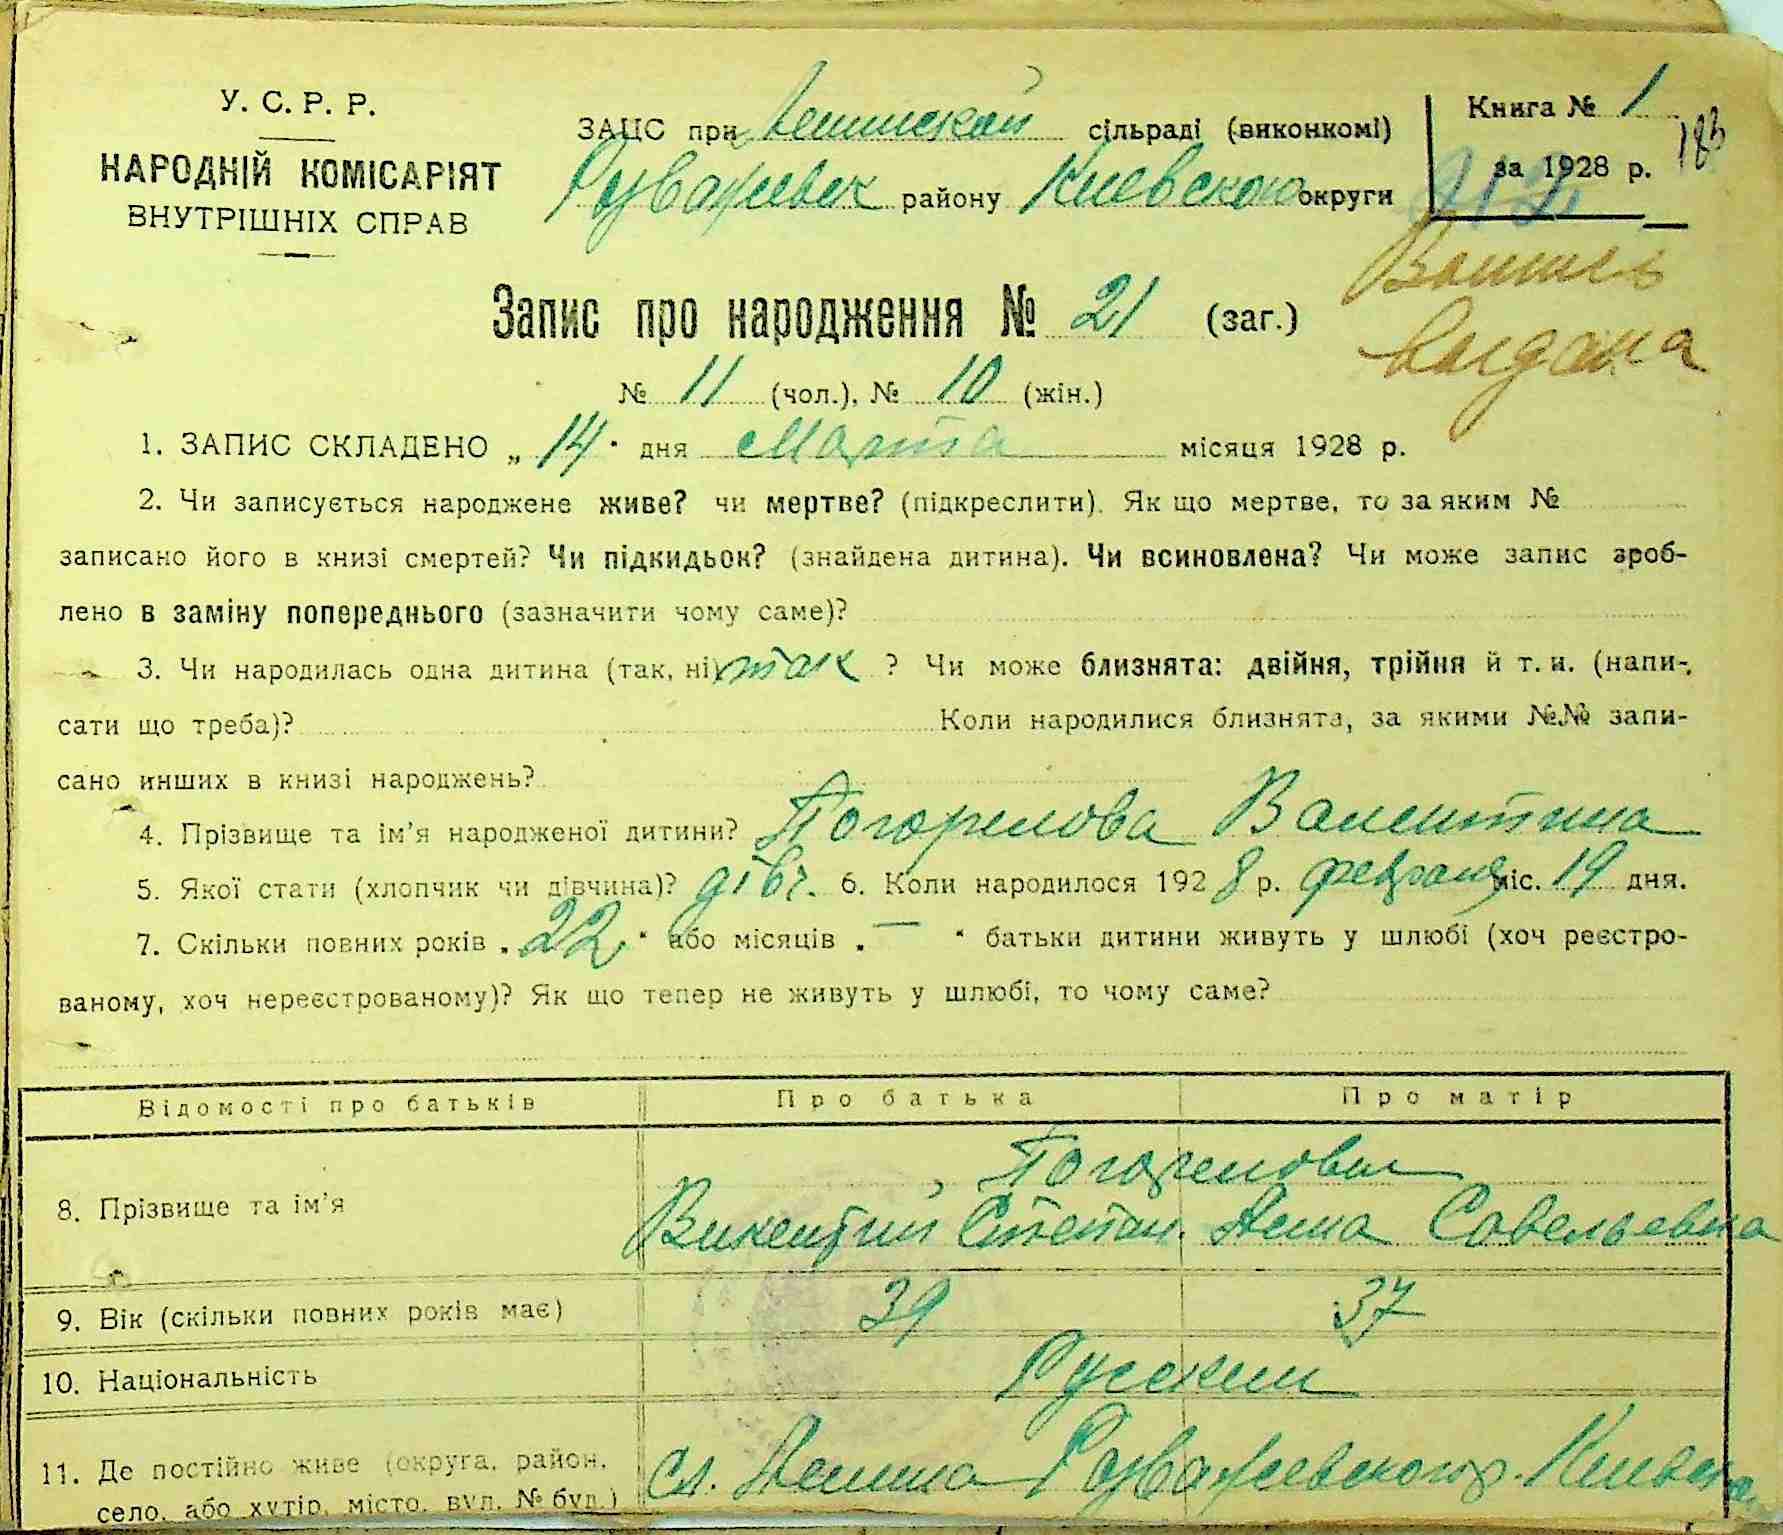 У. С. Р. Р.
НАРОДНІЙ КОМІСАРІЯТ
ВНУТРІШНІХ СПРАВ
ЗАЦС при сільраді (виконкомі)
району Киевской округи
Книга № 1
за 1928 р.
183
Запис про народження № 21 (заг.)
№ 11 (чол.), № 10 (жін.)
1. ЗАПИС СКЛАДЕНО „ 14 " дня Марта місяця 1928 р.
2. Чи записується народжене живе? чи мертве? (підкреслити). Як що мертве, то за яким №
записано його в книзі смертей? Чи підкидьок? (знайдена дитина). Чи всиновлена? Чи може запис зроб-
лено в заміну попереднього (зазначити чому саме)?
3. Чи народилась одна дитина (так, ні) так ? Чи може близнята: двійня, трійня й т. и. (напи-
сати що треба)? Коли народилися близнята, за якими №№ запи-
сано инших в книзі народжень?
4. Прізвище та ім'я народженої дитини? Погорелова Валентина
5. Якої стати (хлопчик чи дівчина)? дівч. 6. Коли народилося 192 8 р. февраля міс. 19 дня.
7. Скільки повних років „ 22 " або місяців „ — " батьки дитини живуть у шлюбі (хоч реєстро-
ваному, хоч нереєстрованому)? Як що тепер не живуть у шлюбі, то чому саме?
Відомості про батьків Про батька Про матір
8. Прізвище та ім'я Погореловы
Викентий Степан. Анна Савельевна
9. Вік (скільки повних років має) 39 37
10. Національність Русские
11. Де постійно живе (округа, район,
село, або хутір, місто, вул. № буд.) сл.